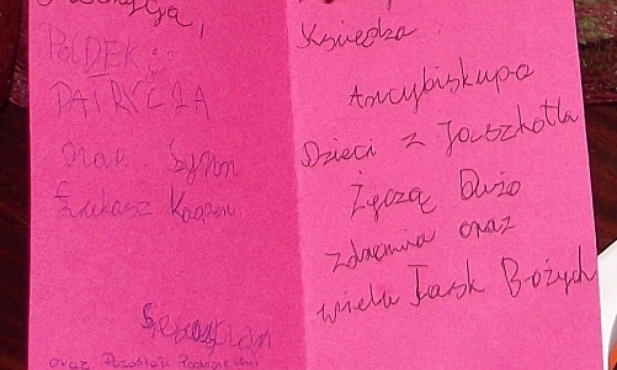 POLDEK
PATRYCJA
oraz Szymon
Łukasz Kacper
Sebastian
oraz Pozostali Podopieczni
Księdza
Arcybiskupa
Dzieci z Jaszkotla
Życzą Dużo
zdrowia oraz
wielu Łask Bożych